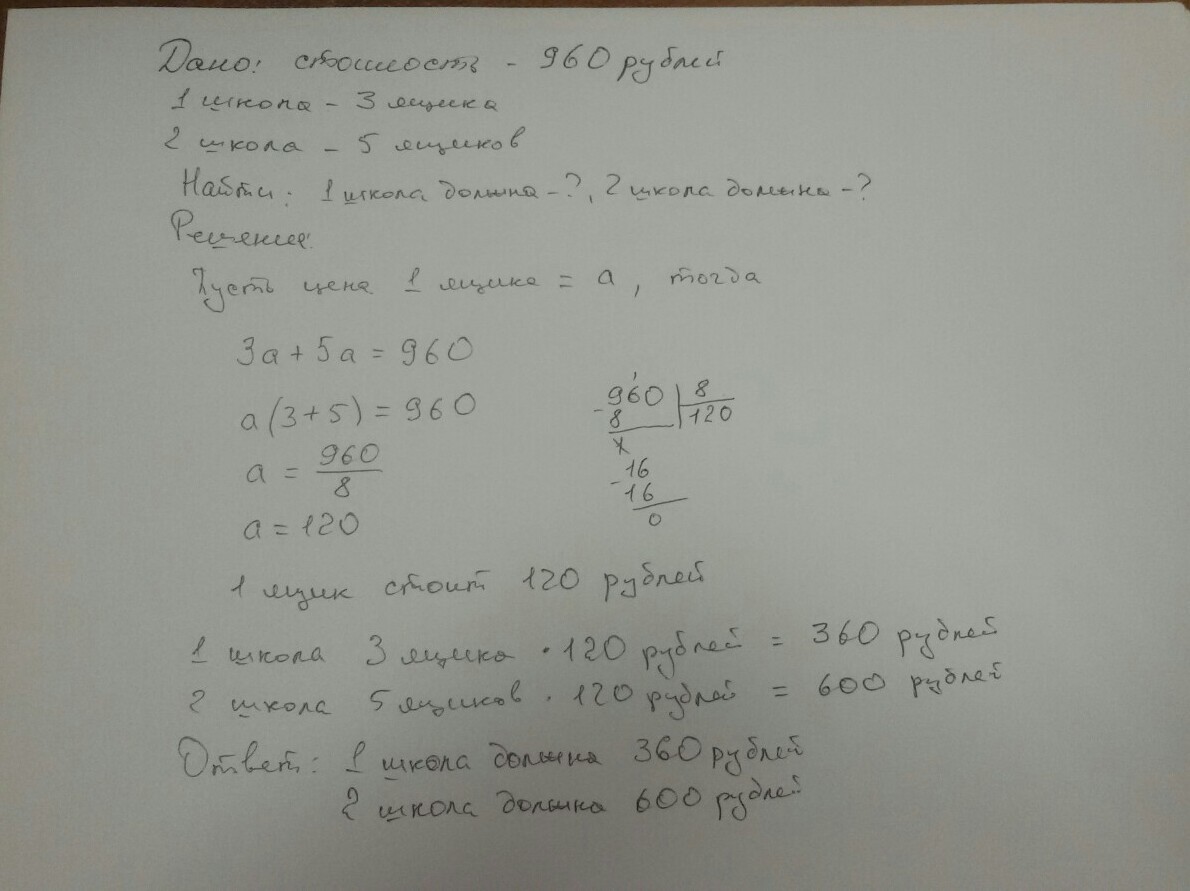 Дано: стоимость - 960 рублей
1 школа - 3 ящика
2 школа - 5 ящиков
Найти: 1 школа должна -?, 2 школа должна -?
Решение:
Пусть цена 1 ящика = a, тогда
3a + 5a = 960
a(3+5) = 960
a = 960/8
a = 120
960 | 8
- 8 | 120
16
- 16
0
1 ящик стоит 120 рублей
1 школа 3 ящика · 120 рублей = 360 рублей
2 школа 5 ящиков · 120 рублей = 600 рублей
Ответ: 1 школа должна 360 рублей
2 школа должна 600 рублей